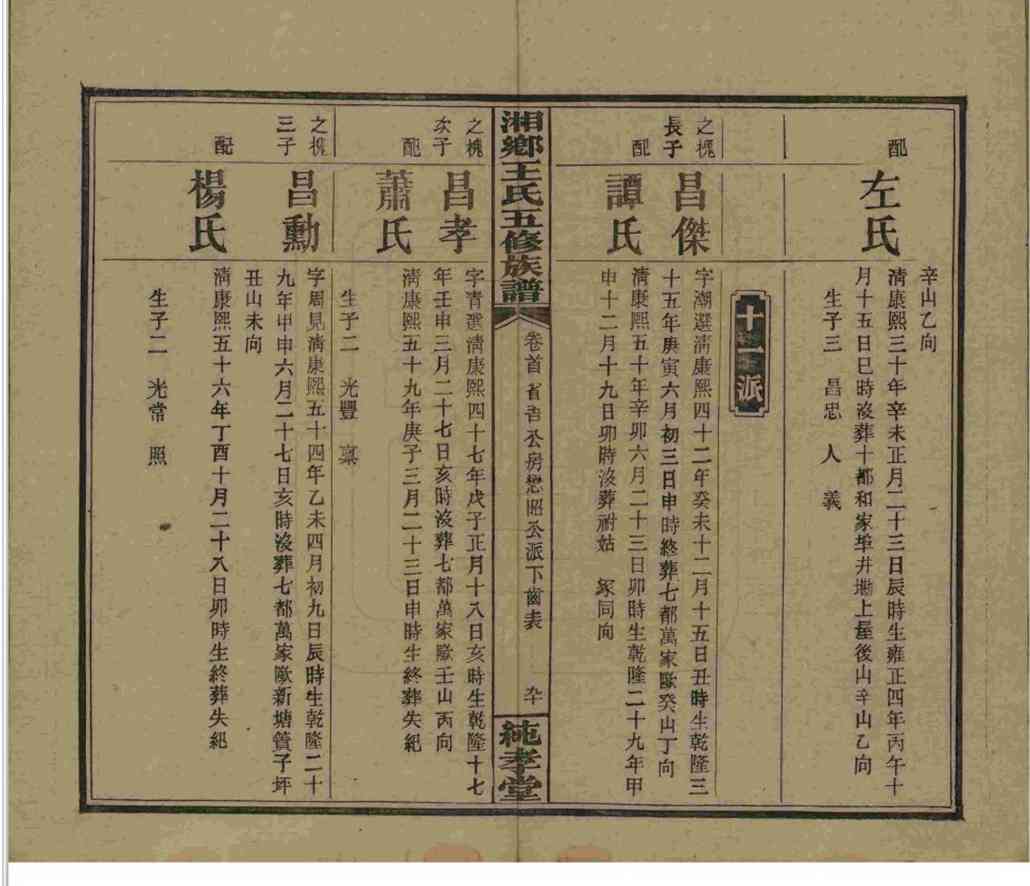 辛山乙向
配
左氏
清康熙三十年辛未正月二十三日辰時生雍正四年丙午十
月十五日巳時歿葬十都和家埠井塝上屋後山辛山乙向
生子三 昌忠 人 義
十一派
之槐
長子
昌傑
字潮選清康熙四十二年癸未十二月十五日丑時生乾隆三
十五年庚寅六月初三日申時終葬七都萬家歐癸山丁向
配
譚氏
清康熙五十年辛卯六月二十三日卯時生乾隆二十九年甲
申十二月十九日卯時歿葬祔姑 冢同向
湘鄉王氏五修族譜
卷首 省吾公房懋昭公派下齒表
純孝堂
之槐
次子
昌孝
字青選清康熙四十七年戊子正月十八日亥時生乾隆十七
年壬申三月二十七日亥時歿葬七都萬家歐壬山丙向
配
蕭氏
清康熙五十九年庚子三月二十三日申時生終葬失紀
生子二 光豐 稟
之槐
三子
昌勳
字周見清康熙五十四年乙未四月初九日辰時生乾隆二十
九年甲申六月二十七日亥時歿葬七都萬家歐新塘簣子坪
丑山未向
配
楊氏
清康熙五十六年丁酉十月二十八日卯時生終葬失紀
生子二 光常 照